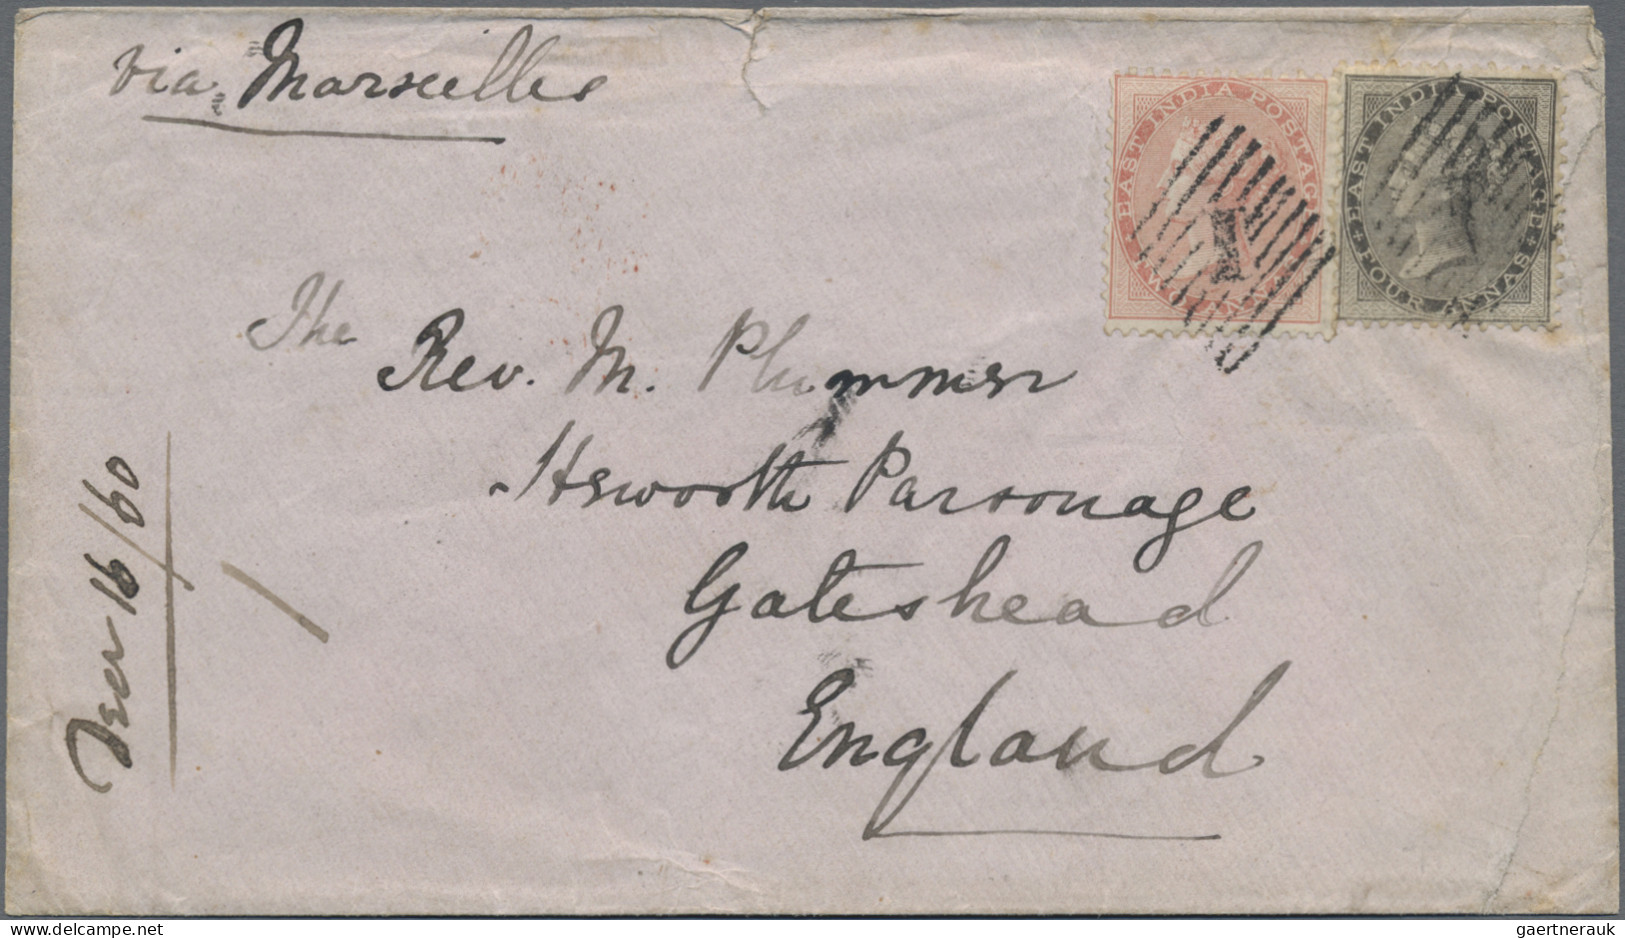 via Marseilles
EAST INDIA POSTAGE
TWO ANNAS
1
EAST INDIA POSTAGE
FOUR ANNAS
The
Rev. M. Plummer
Heworth Parsonage
Gateshead
England
16/60
gaertnerauk